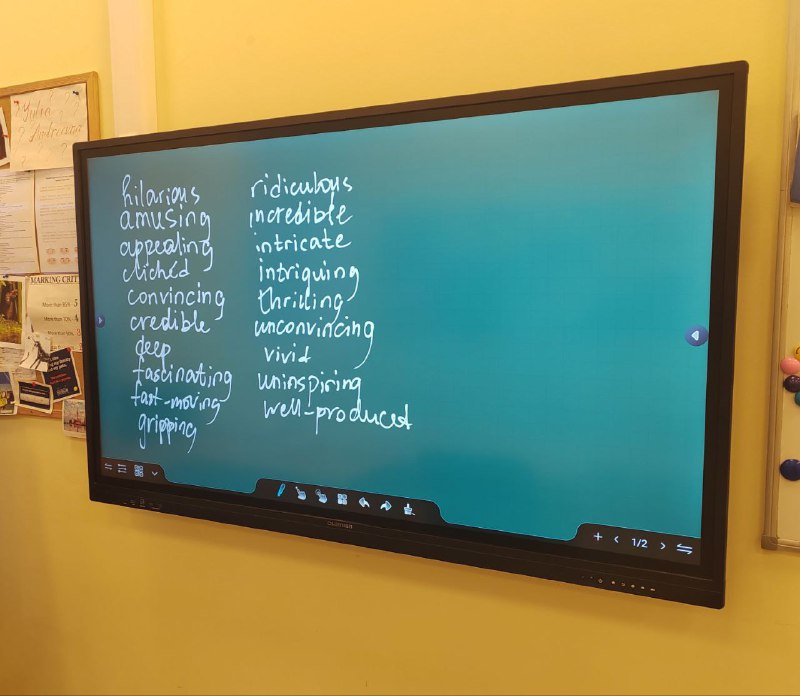 hilarious
amusing
appealing
clichéd
convincing
credible
deep
fascinating
fast-moving
gripping
ridiculous
incredible
intricate
intriguing
thrilling
unconvincing
vivid
uninspiring
well-produced
1/2
MARKING CRIT
More than 85% 5
More than 70% 4
More than 50%
? Julia ? ?